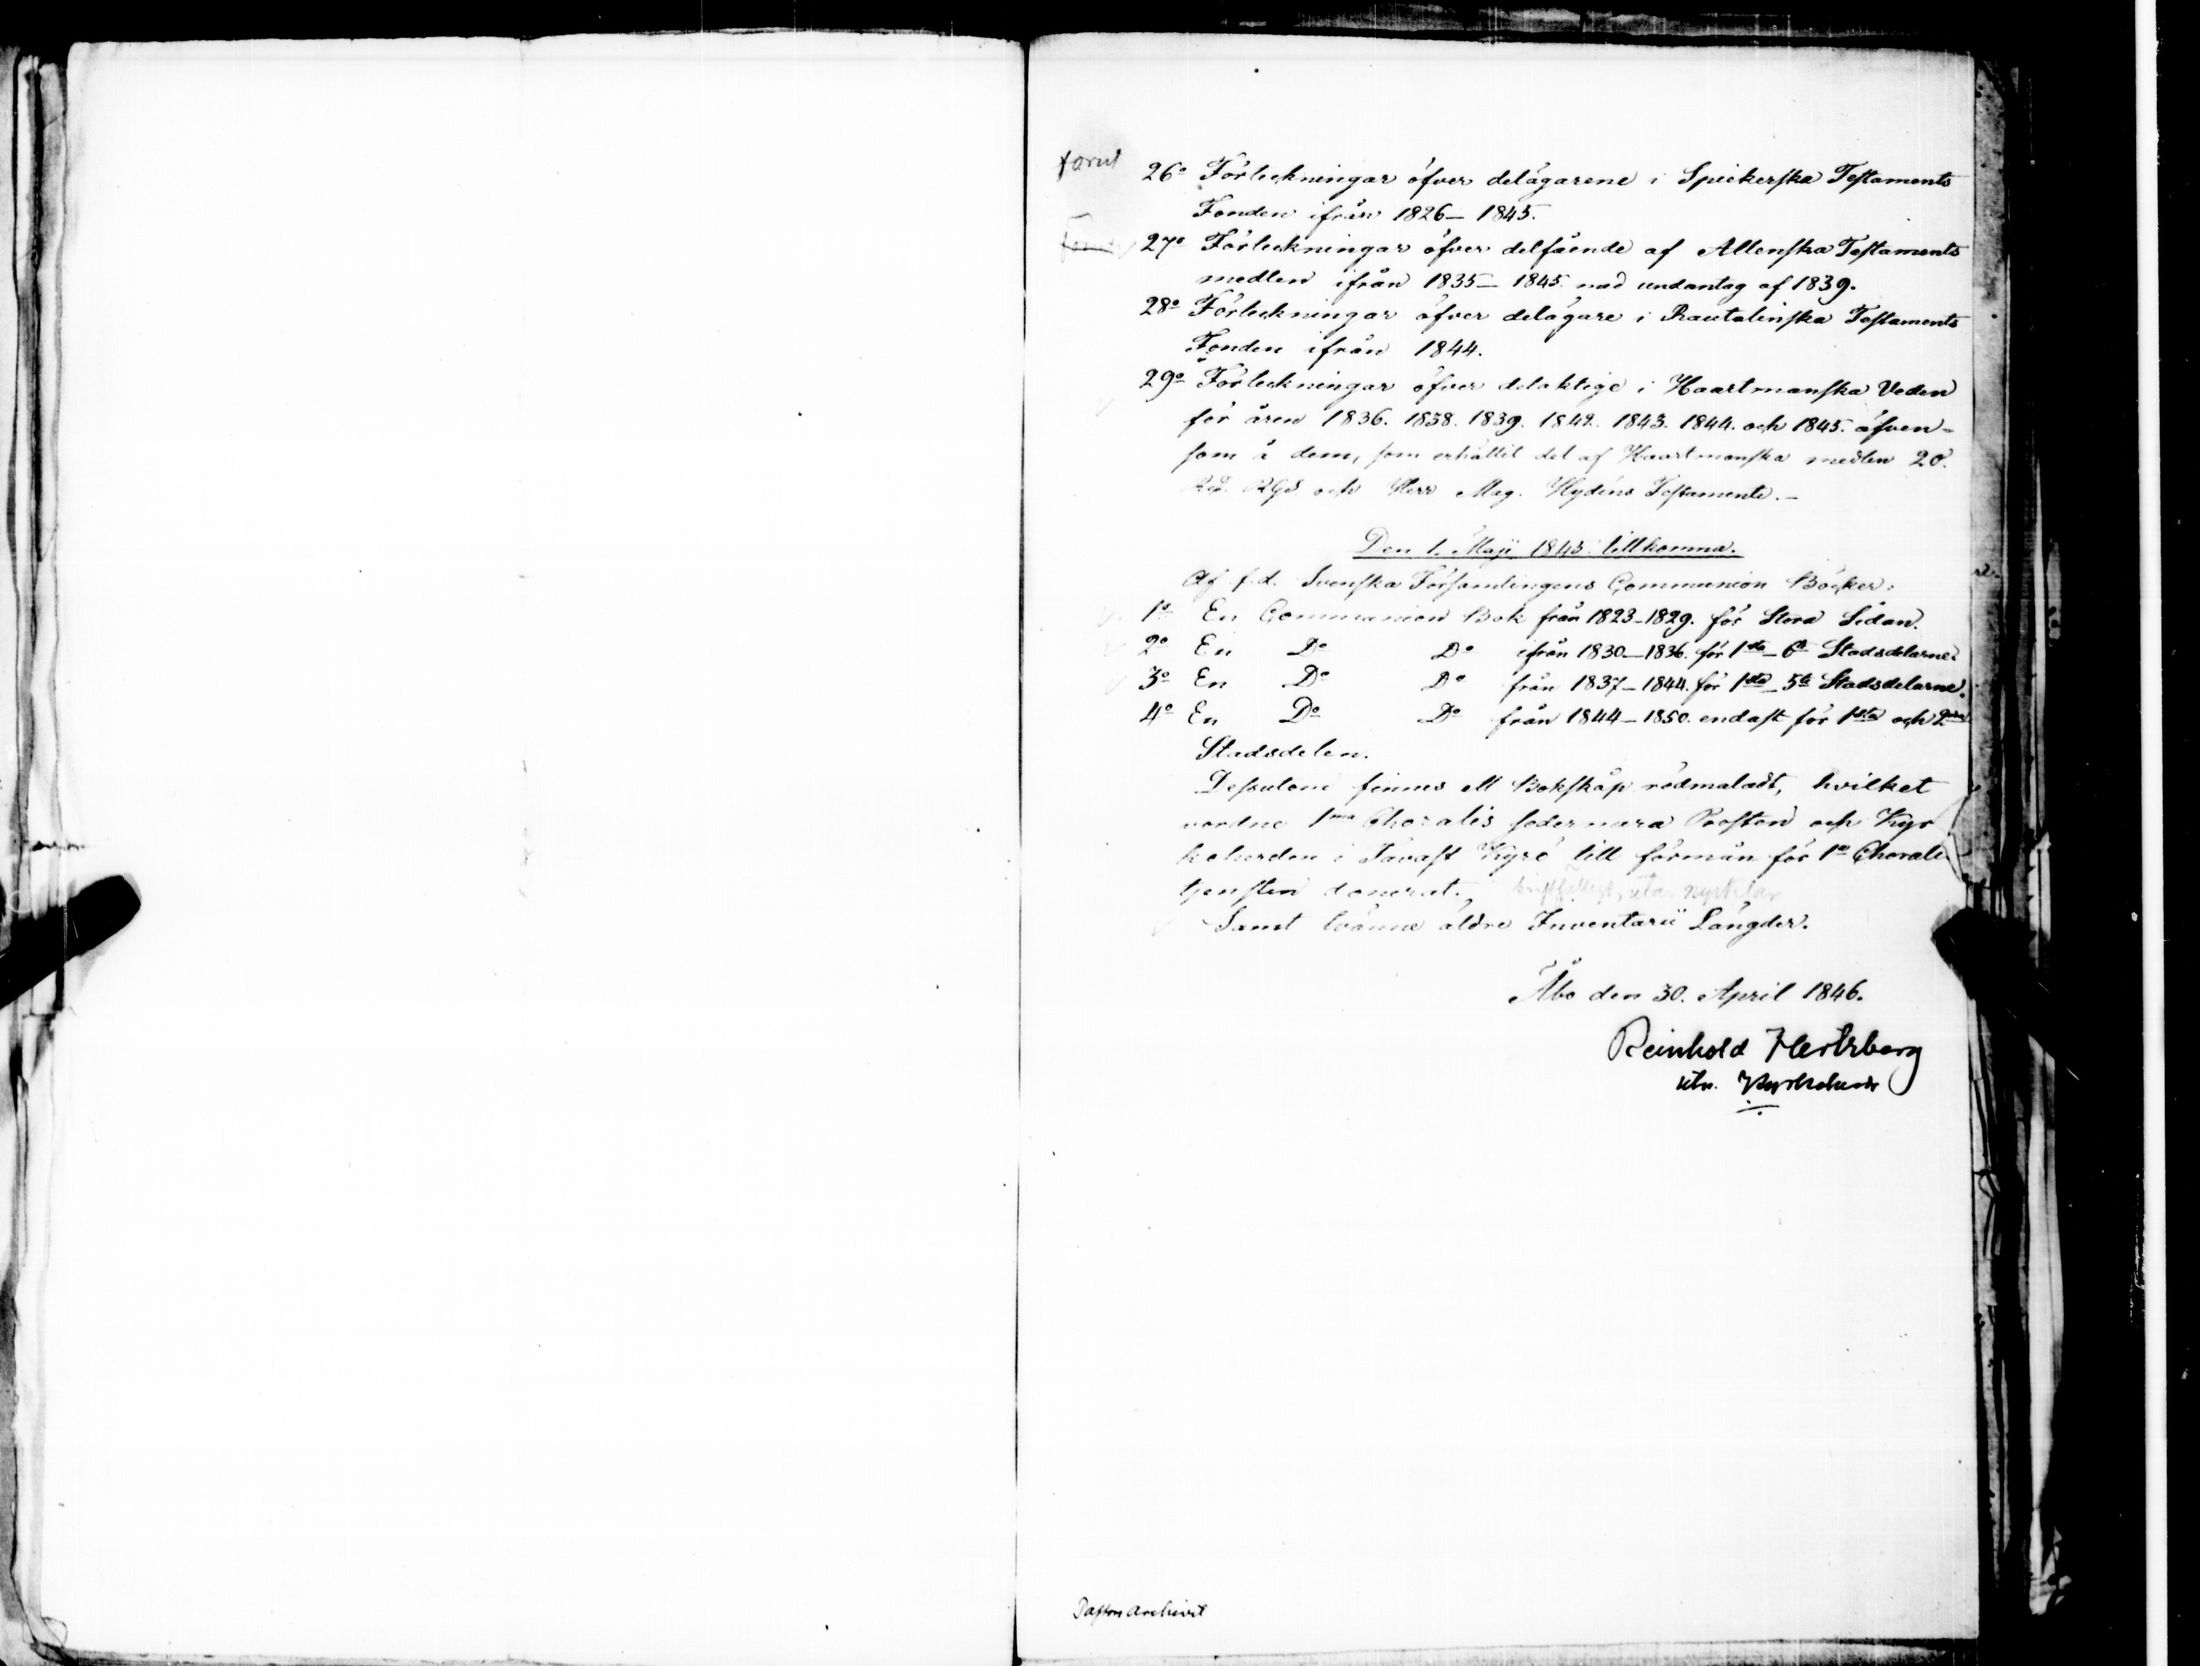 förut
26º Förteckningar öfver delägarene i Spiekerska Testaments
Fonden ifrån 1826–1845.
27º Förteckningar öfver delfående af Allenska Testaments
medlen ifrån 1835–1845 med undantag af 1839.
28º Förteckningar öfver delägare i Rautelinska Testaments
Fonden ifrån 1844.
29º Förteckningar öfver delaktige i Haartmanska Veden
för åren 1836. 1838. 1839. 1842. 1843. 1844. och 1845. äfven-
som å dem, som erhållit del af Haartmanska medlen 20.
och Herr Mag. Hydéns Testamente.–
Den 1. Maji 1845 tillkomna.
Af f.d. Svenska Församlingens Communion Böcker:
1º En Communion Bok från 1823–1829. för Stora Sidan.
2º En Dº Dº ifrån 1830–1836. för 1sta–6te Stadsdelarne.
3º En Dº Dº från 1837–1844. för 1sta–5te Stadsdelarne.
4º En Dº Dº från 1844–1850. endast för 1sta och 2dra
Stadsdelen.
Dessutom finnes ett Bokskåp rödmaladt, hvilket
vordne 1ma Choralis sedermera Prosten och Kyr
koherden i Tavast Kyrö till förmån för 1º Chorals
tjensten donerat. bristfälligt, utan nycklar
Samt tvänne äldre Inventarii Längder.
Åbo den 30. April 1846.
Reinhold Hertzberg
utn. Kyrkoherde
Pastors Archivet